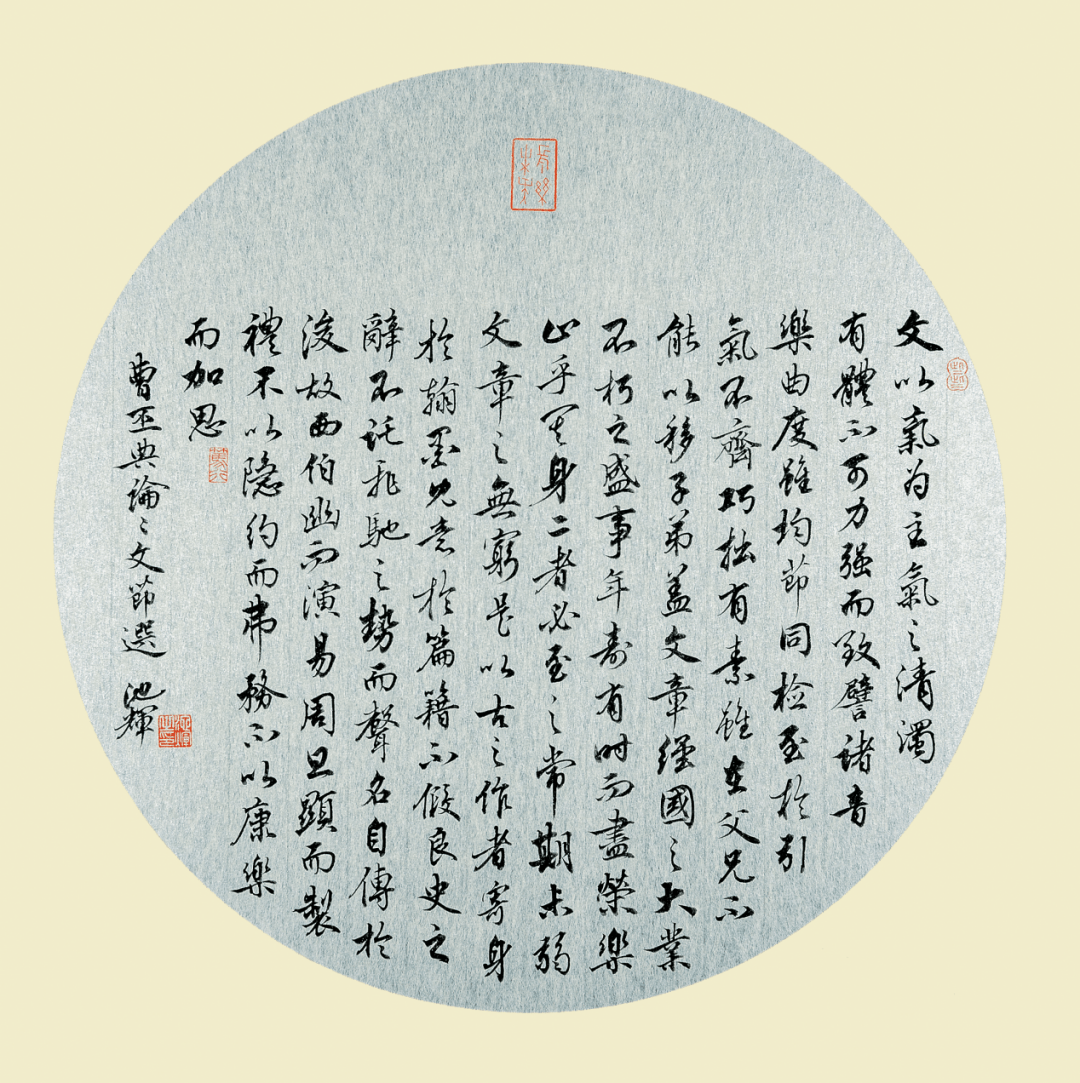 文以氣为主氣之清濁
有體不可力强而致譬诸音
樂曲度雖均節同检至於引
氣不齊巧拙有素雖在父兄不
能以移子弟盖文章經國之大業
不朽之盛事年寿有時而盡榮樂
止乎其身二者必至之常期未若
文章之無窮是以古之作者寄身
於翰墨見意於篇籍不假良史之
辭不託飛馳之勢而聲名自傳於
後故西伯幽而演易周旦顯而製
禮不以隐约而弗務不以康樂
而加思
曹丕典論之文節選 池輝